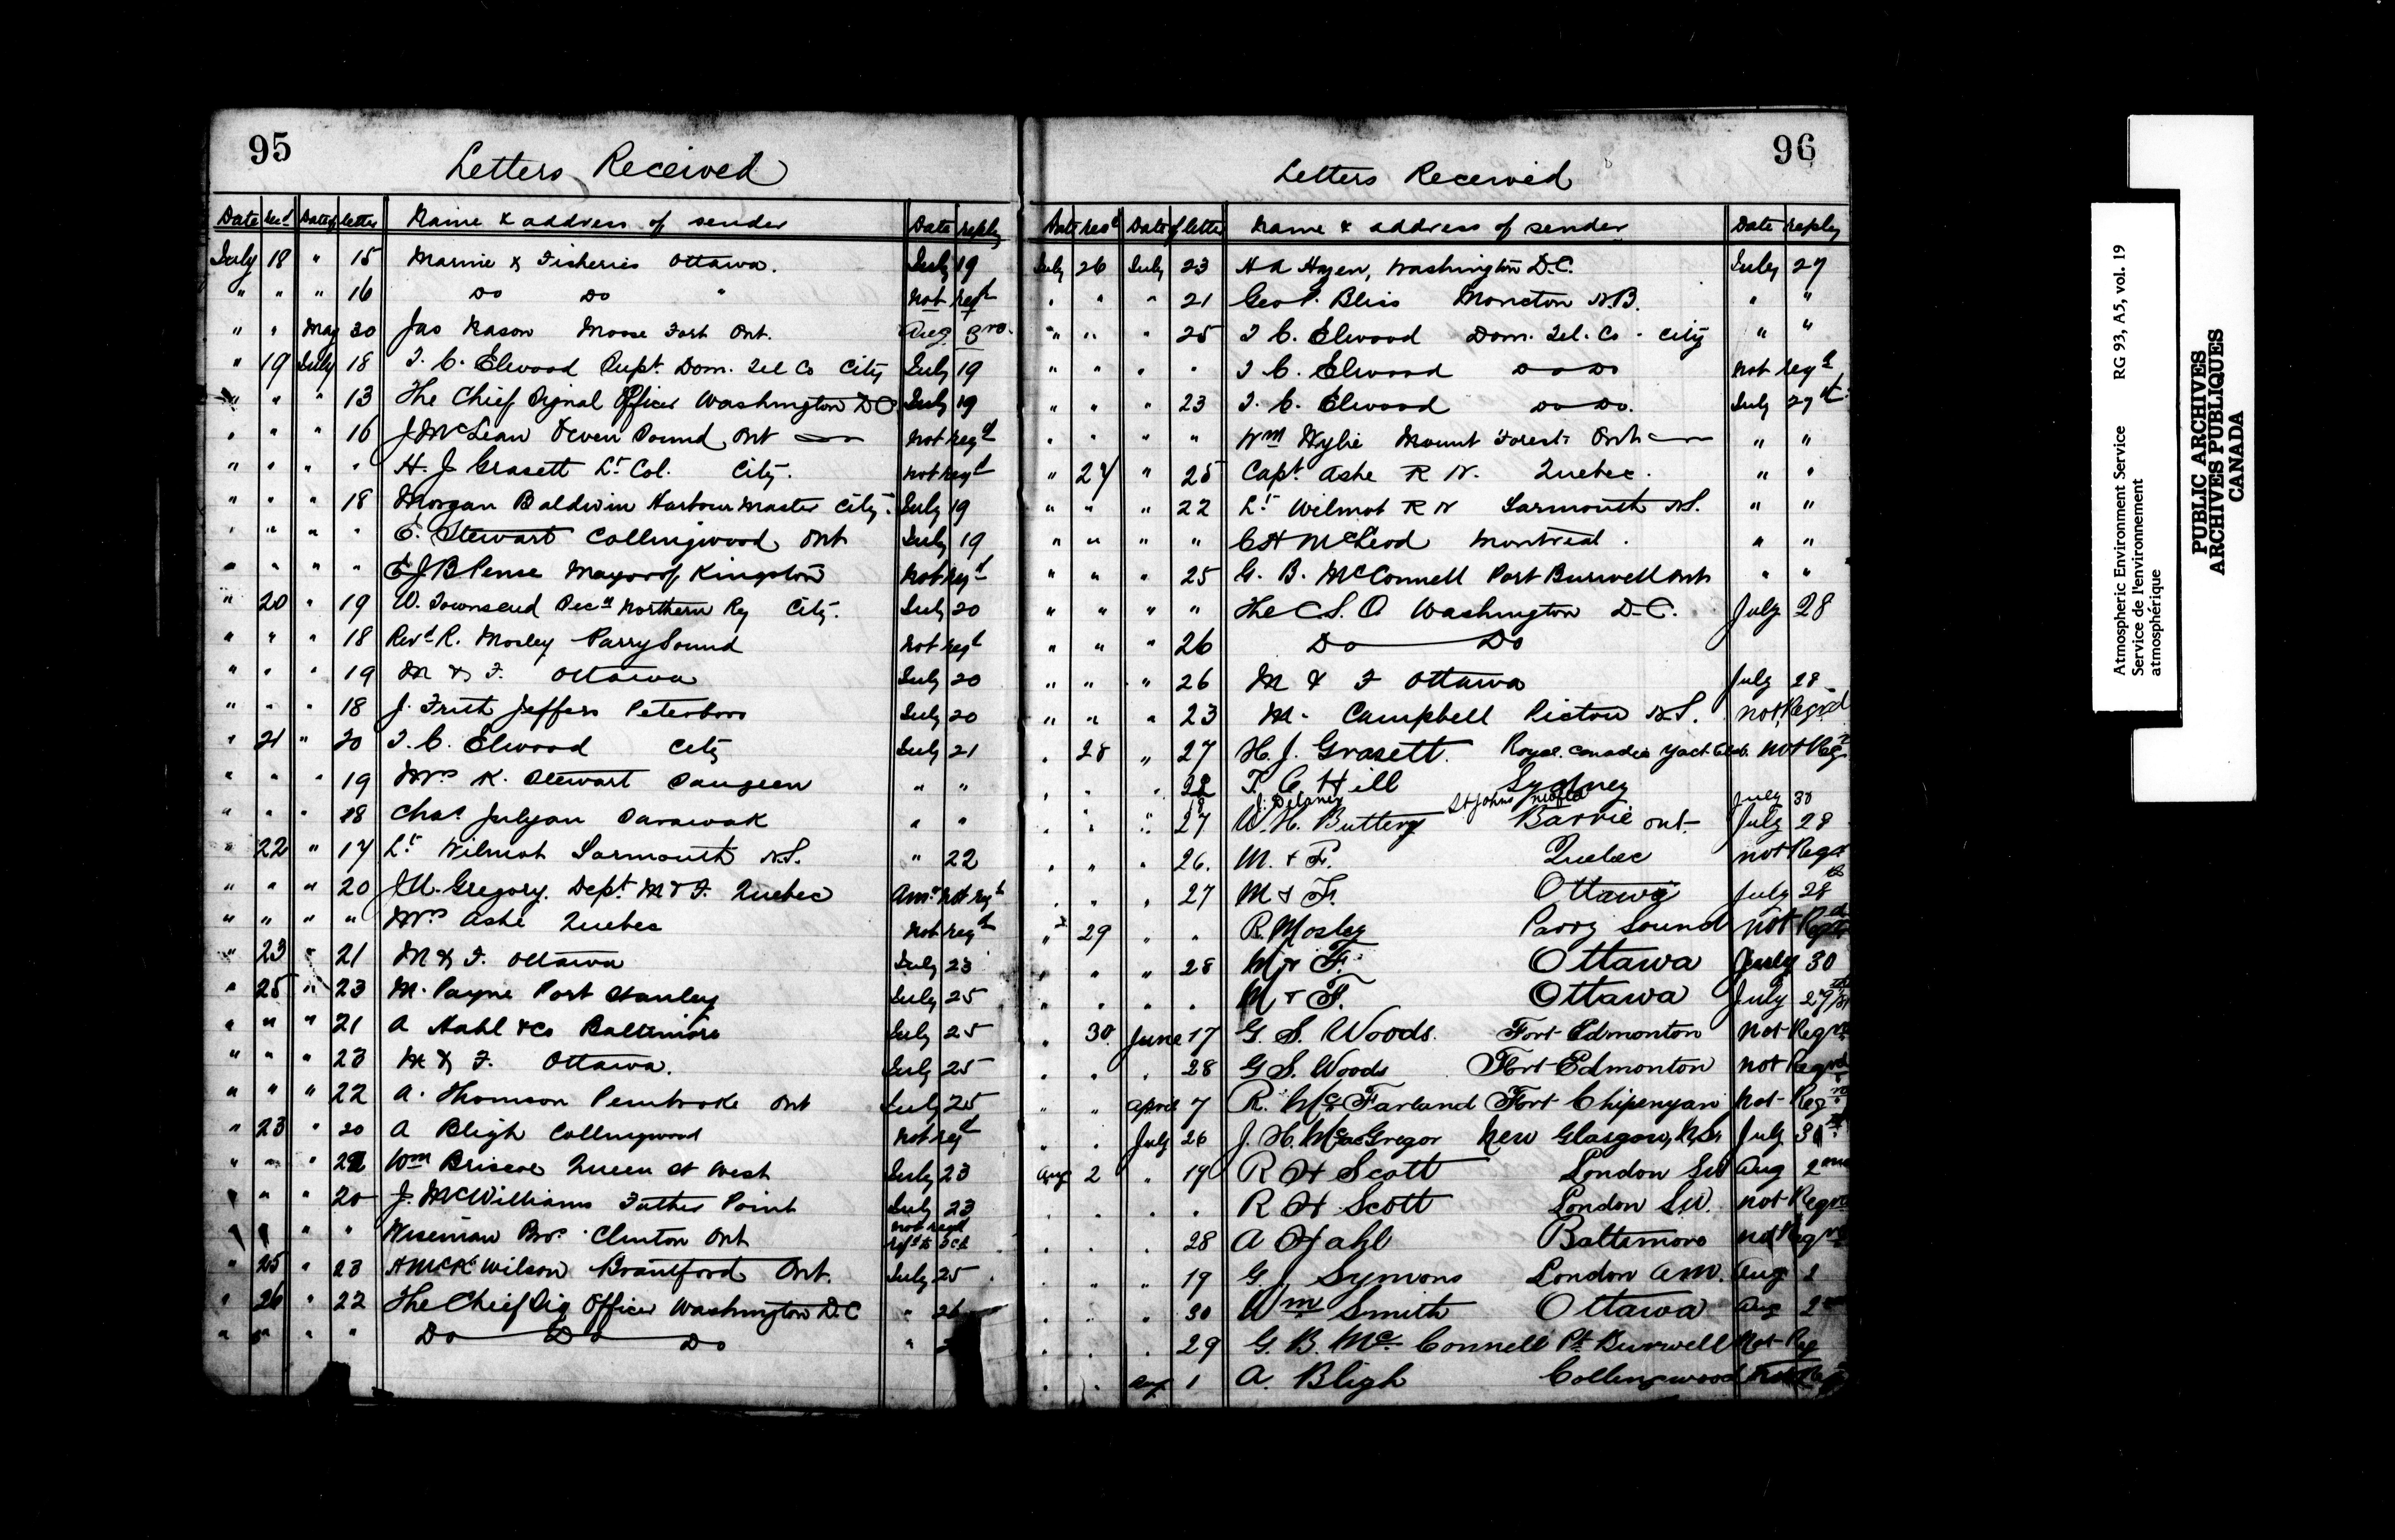 95
Letters Received
Date Recd Date of letter Name & address of sender Date reply
July 18 " 15 Marine & Fisheries Ottawa. July 19
" " " 16 Do Do " not reqd
" " May 30 Jas Nason Moose Fort Ont. Aug 3rd
" 19 July 18 T. C. Elwood Supt. Dom. Tel Co City July 19
" " " 13 The Chief Signal Officer Washington DC July 19
" " " 16 J McLean Owen Sound Ont not reqd
" " " " H. J Grasett Lt Col. City. not reqd
" " " 18 Morgan Baldwin Harbour Master City. July 19
" " " " E. Stewart Collingwood Ont July 19
" " " " E J B Pense Mayor of Kingston not reqd
" 20 " 19 W. Townsend Secy Northern Ry City. July 20
" " " 18 Revd R. Mosley Parry Sound not reqd
" " " 19 M & F. Ottawa July 20
" " " 18 J. Frith Jeffers Peterboro July 20
" 21 " 20 T. C. Elwood City July 21
" " " 19 Mrs K. Stewart Saugeen " "
" " " 18 Chas. Julyan Sarawak " "
" 22 " 17 Lt Wilmot Yarmouth N.S. " 22
" " " 20 J.U. Gregory. Dept. M & F. Quebec Ansr not reqd
" " " " Mrs Ashe Quebec not reqd
" 23 " 21 M & F. Ottawa July 23
" 25 " 23 M. Payne Port Stanley July 25
" " " 21 A Hahl & Co Baltimore July 25
" " " 23 M & F. Ottawa. July 25
" " " 22 A. Thomson Pembroke Ont July 25
" 23 " 20 A Bligh Collingwood not reqd
" " " 22 Wm Briscoe Queen St West July 23
" " " 20 J. McWilliams Father Point July 23
" " " " Wiseman Bros. Clinton Ont not reqd
" 25 " 23 H McK Wilson Brantford Ont. July 25
" 26 " 22 The Chief Sig Officer Washington D.C " 26
" " " " Do Do Do "
96
Letters Received
Date recd Date of letter Name & address of sender Date reply
July 26 July 23 H A Hazen, Washington D.C. July 27
" " " 21 Geo P. Bliss Moncton N.B. " "
" " " 25 T C. Elwood Dom. Tel. Co. City " "
" " " " T C. Elwood Do Do not reqd
" " " 23 T. C. Elwood Do Do. July 27th
" " " " Wm Wylie Mount Forest Ont " "
" 27 " 25 Capt. Ashe R N. Quebec. " "
" " " 22 Lt Wilmot R N Yarmouth N.S. " "
" " " " C H McLeod Montreal. " "
" " " 25 G. B. McConnell Port Burwell Ont " "
" " " " The C S. O Washington D.C. July 28
" " " 26 Do Do
" " " 26 M & F Ottawa July 28
" " " 23 M. Campbell Pictou N.S. not Reqd
" 28 " 27 H. J. Grasett. Royal Canadian Yacht Club. not Reqd
" " " 22 T. C Hill Sydney
18 J. Delaney St Johns Nfld July 30
" " " 27 W. H. Buttery Barrie Ont. July 28
" " " 26. M. & F. Quebec not Reqd
" " " 27 M & F. Ottawa July 28th
" 29 " " R. Mosley Parry Sound not Reqd
" " " 28 M & F. Ottawa July 30
" " " " M & F. Ottawa July 29th/81
" 30 June 17 G. S. Woods. Fort Edmonton not Reqrd
" " " 28 G S. Woods Fort Edmonton not Reqrd
" " April 7 R. McFarland Fort Chipenyan not Reqrd
" " July 26 J. H. McGregor New Glasgow, N.S. July 31
Aug 2 " 19 R H Scott London SW Aug 2nd
" " " " R H Scott London S.W. not Reqrd
" " " 28 A Hahl Baltimore not Reqrd
" " " 19 G. J. Symons London Aug 2
" " " 30 Wm Smith Ottawa Aug 2nd
" " " 29 G. B. McConnell Pt Burwell Not Req
" " Aug 1 A. Bligh Collingwood
Atmospheric Environment Service RG 93, A5, vol. 19
Service de l'environnement
atmosphérique
PUBLIC ARCHIVES
ARCHIVES PUBLIQUES
CANADA